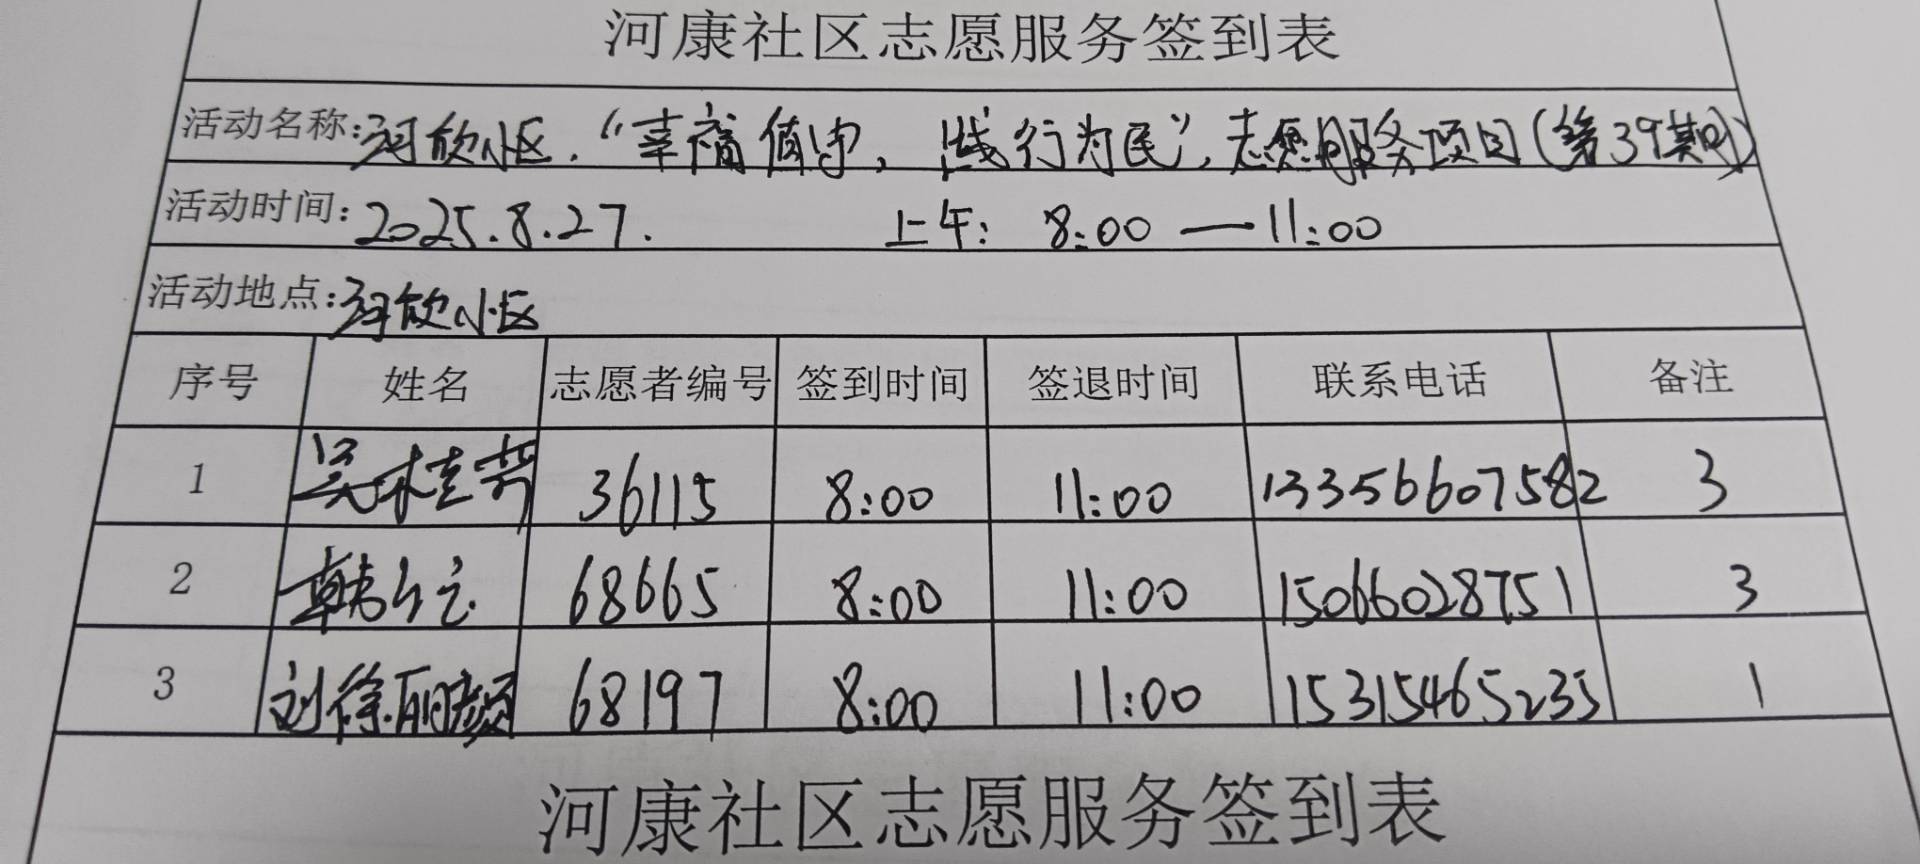 河康社区志愿服务签到表
活动名称:河欣小区,“幸福值守,践行为民”,志愿服务项目(第39期)
活动时间:2025.8.27. 上午: 8:00 — 11:00
活动地点:河欣小区
序号 姓名 志愿者编号 签到时间 签退时间 联系电话 备注
1 吴桂芳 36115 8:00 11:00 13356607582 3
2 韩 68665 8:00 11:00 15066028751 3
3 刘徐丽颜 68197 8:00 11:00 15315465235 1
河康社区志愿服务签到表